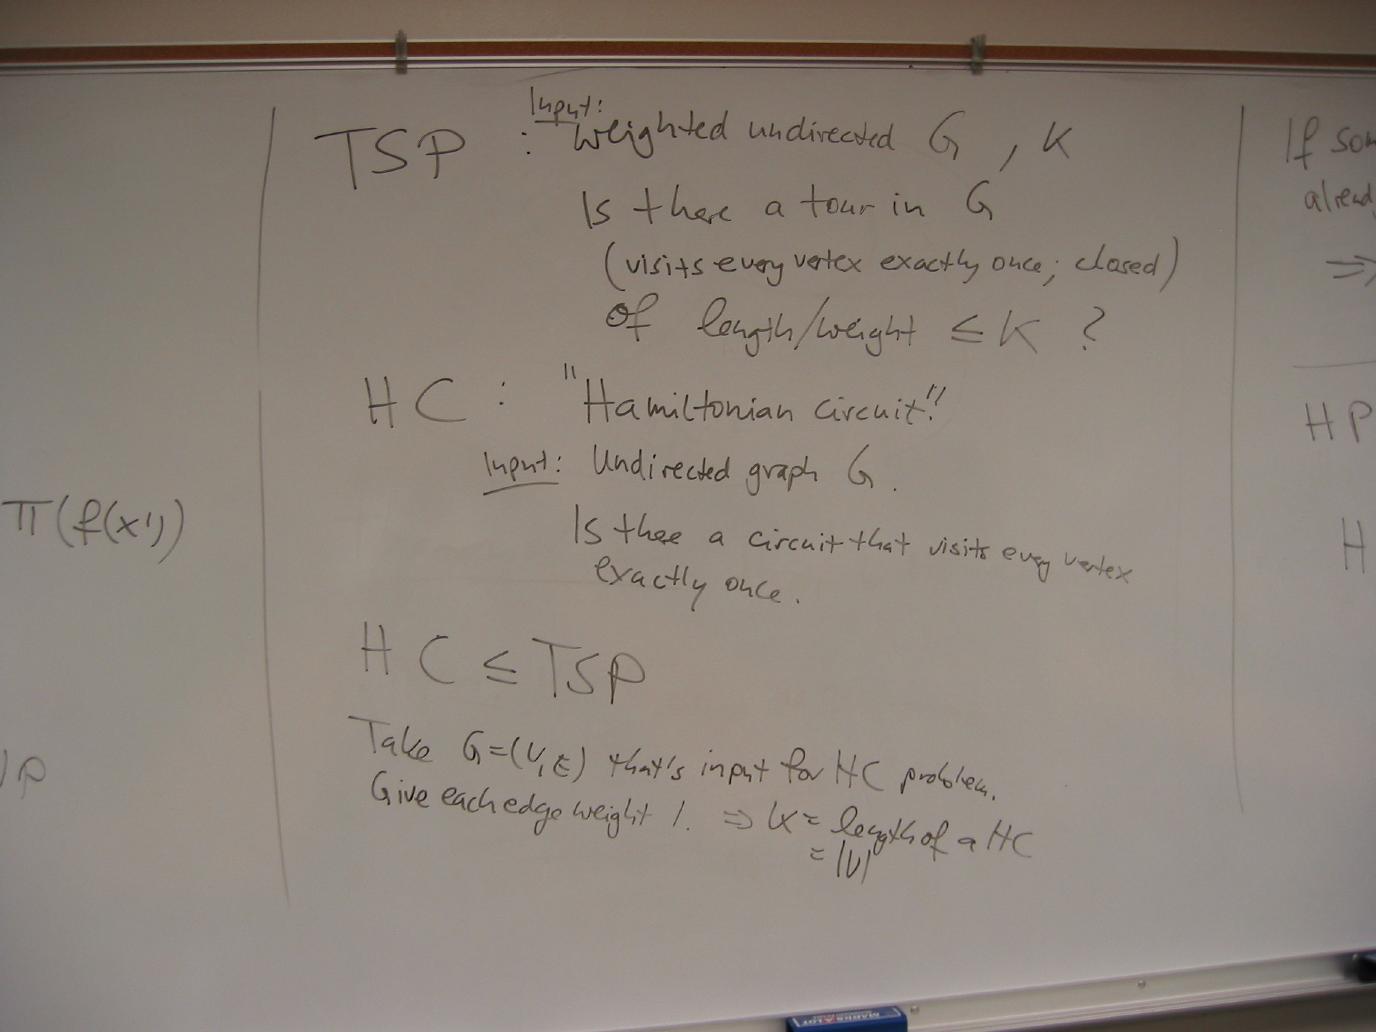 π(f(x'))
P
TSP : Input: weighted undirected G , K
Is there a tour in G
(visits every vertex exactly once; closed)
of length/weight ≤ K ?
HC : "Hamiltonian circuit".
Input: Undirected graph G.
Is there a circuit that visits every vertex
exactly once.
HC ≤ TSP
Take G=(V,E) that's input for HC problem.
Give each edge weight 1. ⇒ K = length of a HC
= |V|
If
⇒
HP
H
MARKS-A-LOT